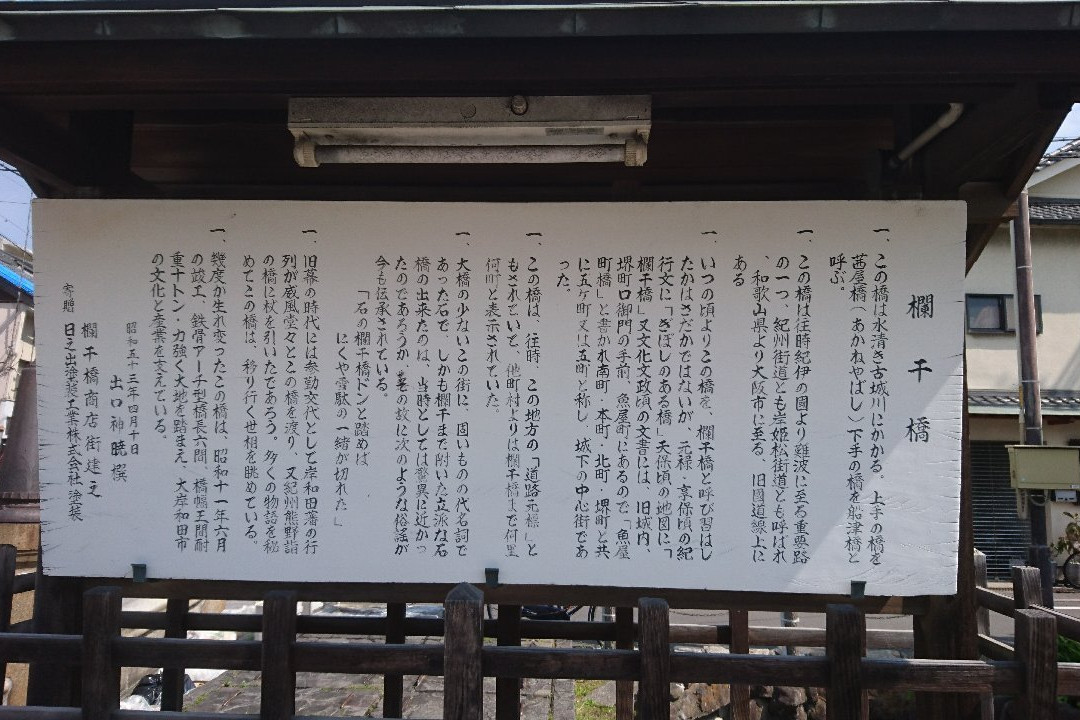 欄干橋
一、この橋は水清き古城川にかかる。上手の橋を
茜屋橋(あかねやばし)下手の橋を船津橋と
呼ぶ。
一、この橋は往時紀伊の國より難波に至る重要路
の一つ、紀州街道とも岸姫松街道とも呼ばれ
、和歌山県より大阪市に至る、旧國道線上に
ある
一、いつの頃よりこの橋を、欄干橋と呼び習はし
たかはさだかではないが、元禄・享保頃の紀
行文に「ぎぼしのある橋」天保頃の地図に「
欄干橋」又文化文政頃の文書には、旧城内、
堺町口御門の手前、魚屋町にあるので「魚屋
町橋」と書かれ南町・本町・北町・堺町と共
に五ヶ町又は五町と称し、城下の中心街であ
った。
一、この橋は、往時、この地方の「道路元標」と
もされていて、他町村よりは欄干橋まで何里
何町と表示されていた。
一、大橋の少ないこの街に、固いものの代名詞で
あった石で、しかも欄干まで附いた立派な石
橋の出来たのは、当時としては驚異に近かっ
たのであろうか、その故に次のような俗謡が
今も伝承されている。
「石の欄干橋ドンと踏めば
にくや雪駄の一緒が切れた」
一、旧幕の時代には参勤交代として岸和田藩の行
列が威風堂々とこの橋を渡り、又紀州熊野詣
の橋と杖を引いたであろう。多くの物語を秘
めてこの橋は、移り行く世相を眺めている。
一、幾度か生れ変ったこの橋は、昭和十一年六月
の竣工、鉄骨アーチ型橋長六間、橋幅五間耐
重十トン・力強く大地を踏まえ、大岸和田市
の文化と産業を支えている。
昭和五十三年四月十日
出口神暁 撰
欄干橋商店街建之
寄贈 日之出塗装工業株式会社 塗装